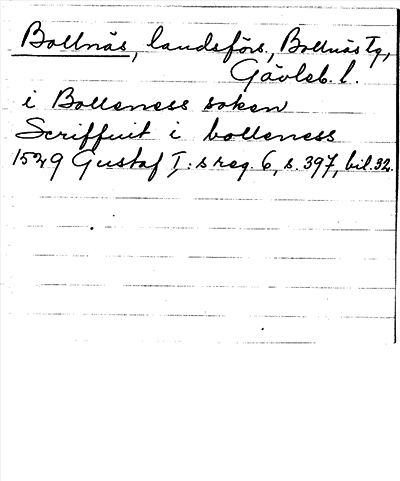 Bollnäs, landsförs., Bollnäs tg,
Gävleb. l.
i Bolleness soken
Scriffuit i bolleness
1529 Gustaf I:s reg. 6, s. 397, bil. 32.